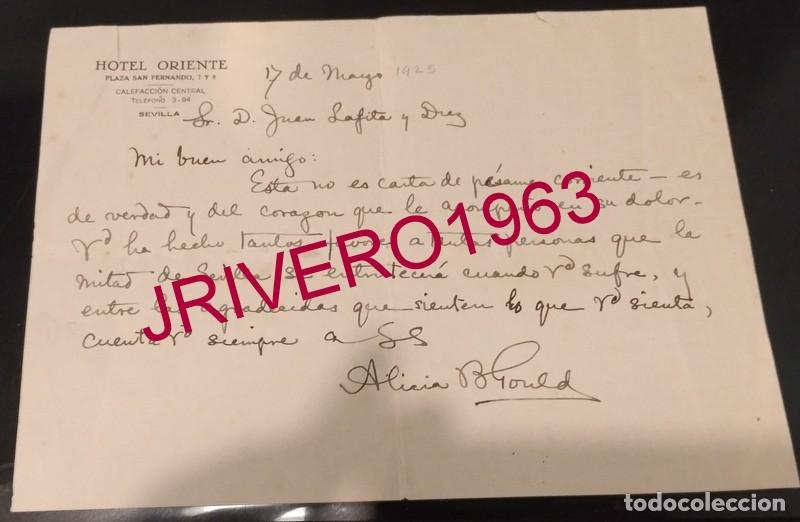 HOTEL ORIENTE
PLAZA SAN FERNANDO, 7 Y 8
CALEFACCIÓN CENTRAL
TELÉFONO 3-94
SEVILLA
17 de Mayo 1925
Sr. D. Juan Lafita y Diez
Mi buen amigo:
Esta no es carta de pésame corriente - es
de verdad y del corazon que le acompaño en su dolor-
Vd ha hecho tantos favores a tantas personas que la
mitad de Sevilla se entristecerá cuando Vd sufre, y
entre las agradecidas que sienten lo que Vd sienta,
cuenta Vd siempre a SS
Alicia B Gould
JRIVERO1963
todocoleccion